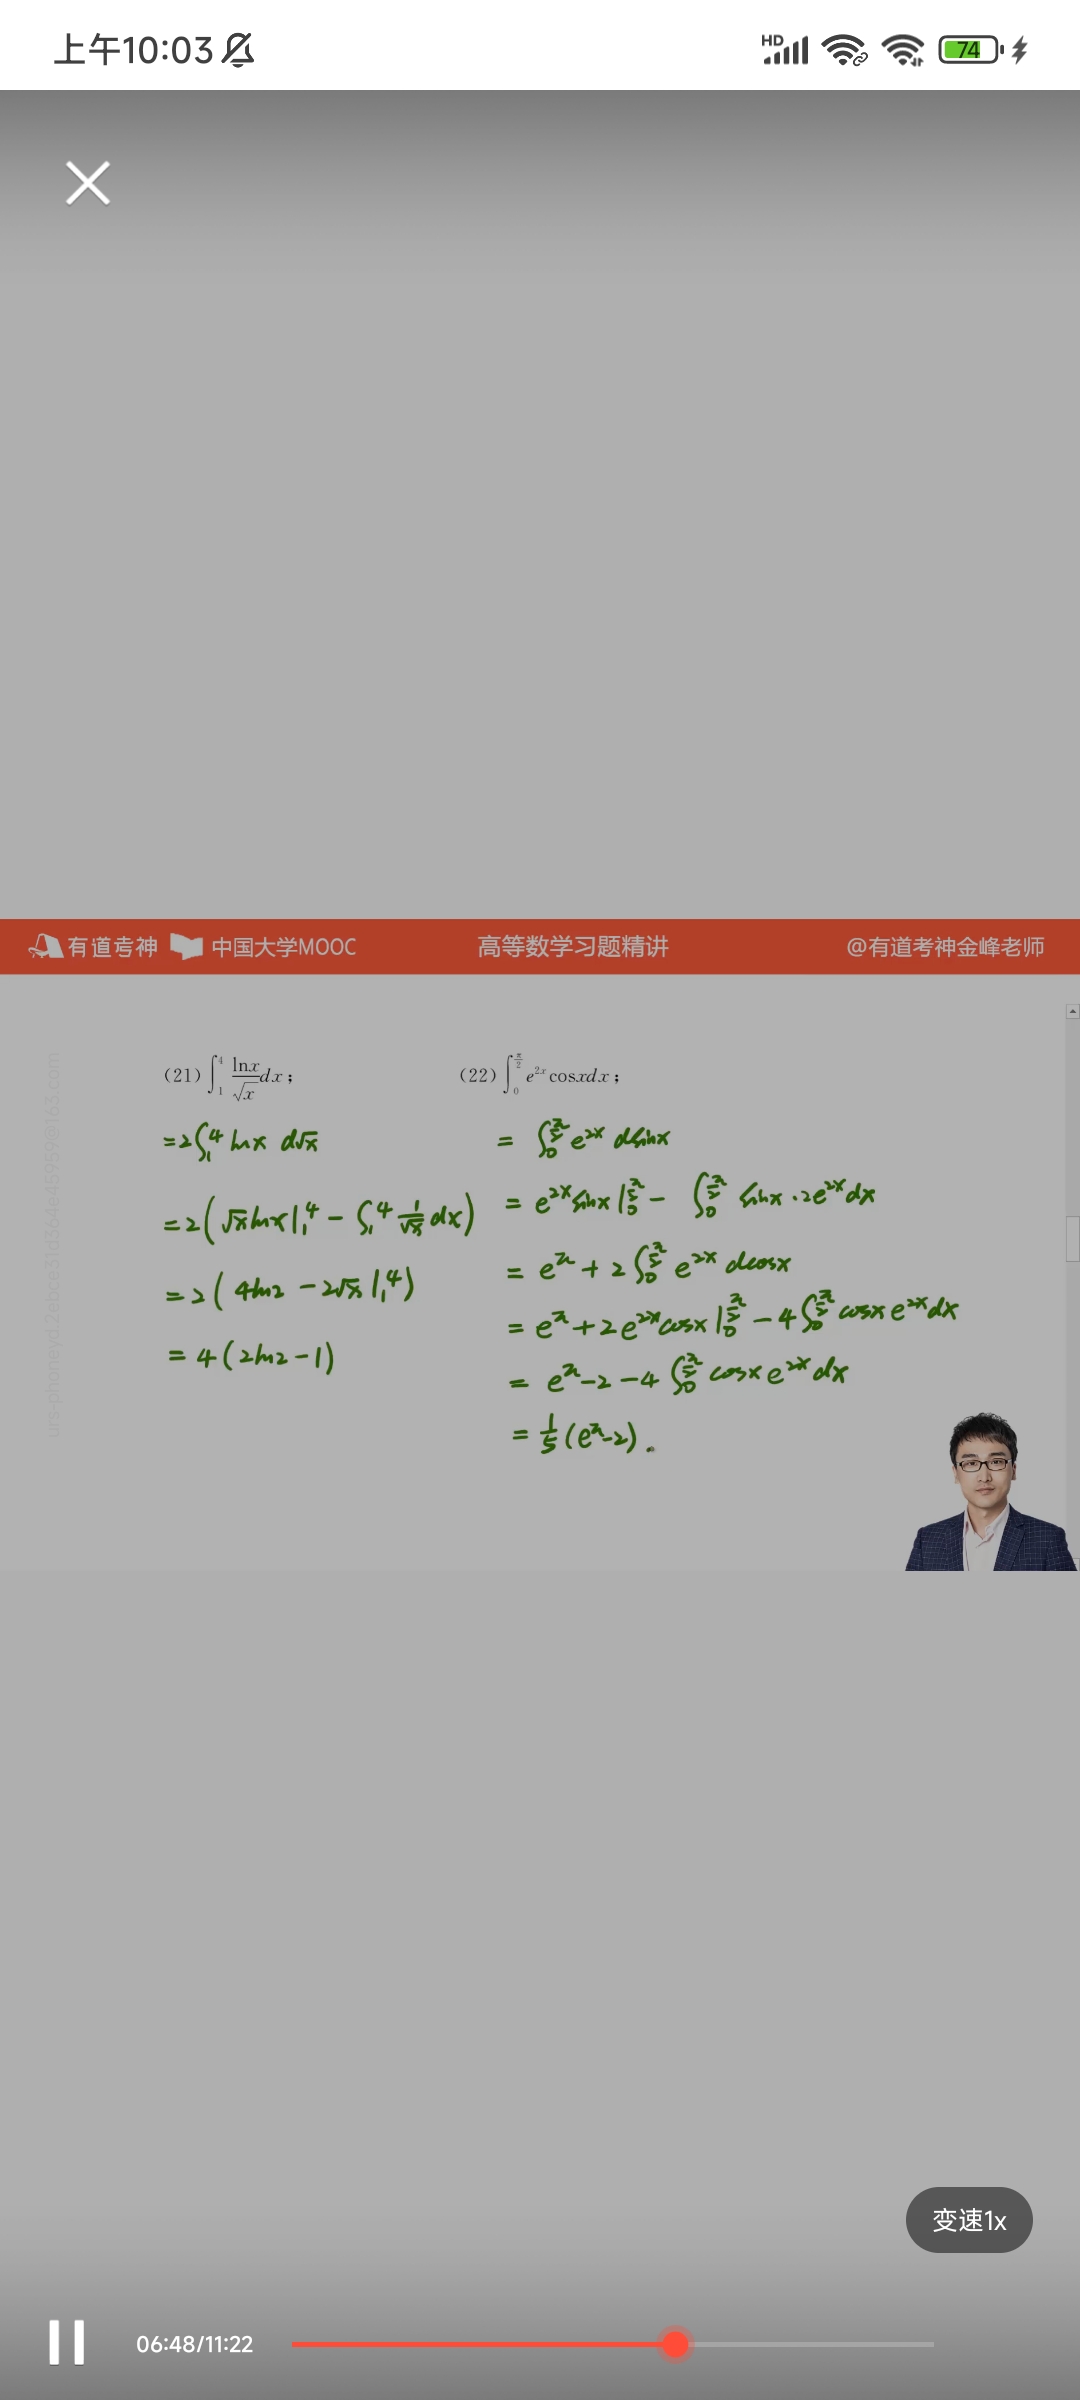 上午10:03 HD 74
有道考神 中国大学MOOC 高等数学习题精讲 @有道考神金峰老师
(21) ∫₁⁴ lnx/√x dx; (22) ∫₀^(π/2) e^(2x) cosxdx;
=2∫₁⁴ lnx d√x
=2(√x lnx|₁⁴ - ∫₁⁴ 1/√x dx)
=2(4ln2 - 2√x|₁⁴)
=4(2ln2-1)
= ∫₀^(π/2) e^(2x) dsinx
= e^(2x) sinx|₀^(π/2) - ∫₀^(π/2) sinx·2e^(2x)dx
= e^π + 2∫₀^(π/2) e^(2x) dcosx
= e^π + 2e^(2x)cosx|₀^(π/2) - 4∫₀^(π/2) cosx e^(2x)dx
= e^π - 2 - 4∫₀^(π/2) cosx e^(2x)dx
= 1/5(e^π-2).
变速1x
06:48/11:22